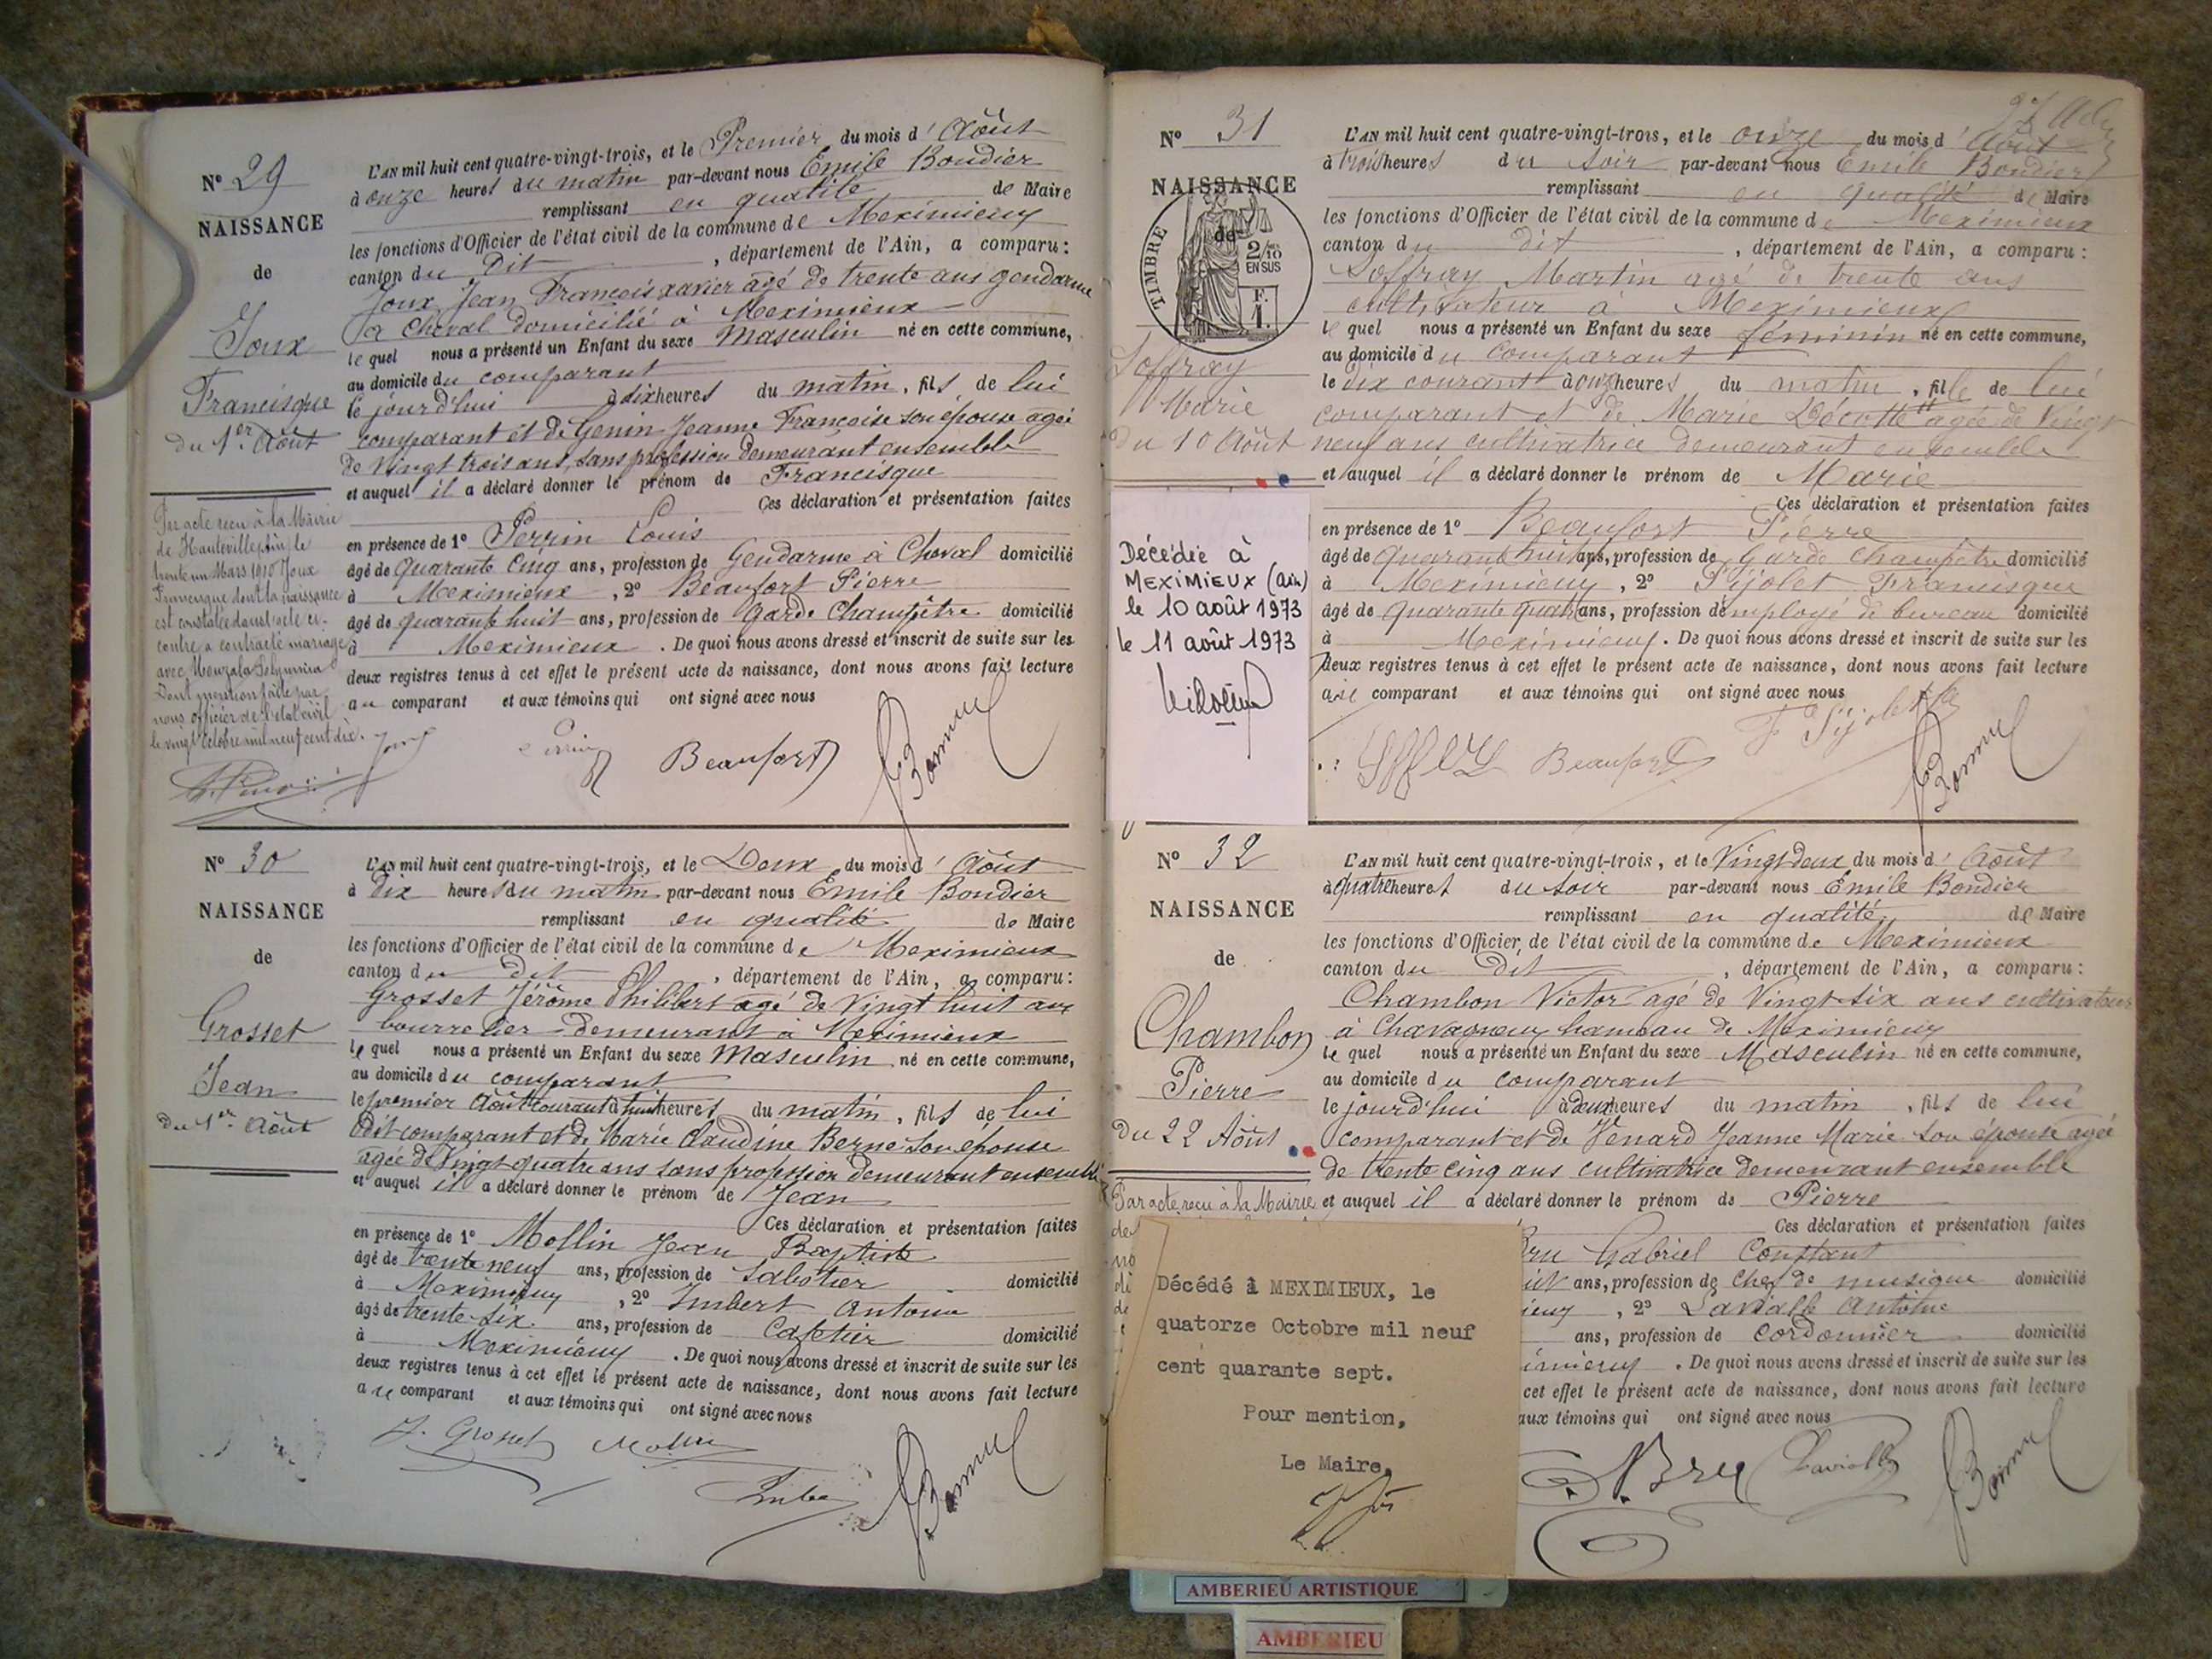 N° 29
NAISSANCE
de
Joux
Francisque
du 1er Août
Par acte reçu à la Mairie
de Hauteville, Ain, le
trente un Mars 1910 Joux
Francisque dont la naissance
est constatée dans l'acte ci-
contre a contracté mariage
avec
Dont mention faite par
nous officier de l'état civil
le vingt Octobre mil neuf cent dix.
L'AN mil huit cent quatre-vingt-trois, et le Premier du mois d'Août
à onze heures du matin par-devant nous Emile Bondier
remplissant en qualité de Maire
les fonctions d'Officier de l'état civil de la commune de Meximieux
canton du Dit, département de l'Ain, a comparu:
Joux Jean François xavier âgé de trente ans gendarme
à Cheval domicilié à Meximieux
lequel nous a présenté un Enfant du sexe Masculin né en cette commune,
au domicile du comparant
le jourd'hui à dix heures du matin, fils de lui
comparant et de Genin Jeanne Françoise son épouse agée
de Vingt trois ans, sans profession demeurant ensemble
et auquel il a déclaré donner le prénom de Francisque
Ces déclaration et présentation faites
en présence de 1° Perrin Louis
âgé de Quarante Cinq ans, profession de Gendarme à Cheval domicilié
à Meximieux, 2° Beaufort Pierre
âgé de quarante huit ans, profession de Garde Champêtre domicilié
à Meximieux. De quoi nous avons dressé et inscrit de suite sur les
deux registres tenus à cet effet le présent acte de naissance, dont nous avons fait lecture
au comparant et aux témoins qui ont signé avec nous
Perrin Beaufort
N° 30
NAISSANCE
de
Grosset
Jean
Du 1er Août
L'AN mil huit cent quatre-vingt-trois, et le Deux du mois d'Août
à dix heures du matin par-devant nous Emile Bondier
remplissant en qualité de Maire
les fonctions d'Officier de l'état civil de la commune de Meximieux
canton du dit, département de l'Ain, a comparu:
Grosset Jérôme Philibert agé de Vingt huit ans
bourrelier demeurant à Meximieux
lequel nous a présenté un Enfant du sexe Masculin né en cette commune,
au domicile du comparant
le premier Août courant à huit heures du matin, fils de lui
dit comparant et de Marie Claudine Berne son épouse
agée de Vingt quatre ans sans profession demeurant ensemble
et auquel il a déclaré donner le prénom de Jean
Ces déclaration et présentation faites
en présence de 1° Mollin Jean Baptiste
âgé de trente neuf ans, profession de Sabotier domicilié
à Meximieux, 2° Imbert Antoine
âgé de trente six ans, profession de Cafetier domicilié
à Meximieux. De quoi nous avons dressé et inscrit de suite sur les
deux registres tenus à cet effet le présent acte de naissance, dont nous avons fait lecture
au comparant et aux témoins qui ont signé avec nous
J. Grosset Mollin
N° 31
NAISSANCE
de
TIMBRE
2/10
EN SUS
F.
1.
Soffray
Marie
du 10 Août
L'AN mil huit cent quatre-vingt-trois, et le onze du mois d'Août
à trois heures du soir par-devant nous Emile Bondier
remplissant en qualité de Maire
les fonctions d'Officier de l'état civil de la commune de Meximieux
canton du dit, département de l'Ain, a comparu:
Soffray Martin agé de trente ans
cultivateur à Meximieux
lequel nous a présenté un Enfant du sexe féminin né en cette commune,
au domicile du comparant
le dix courant à onze heures du matin, fille de lui
comparant et de Marie Décotte agée de Vingt
neuf ans cultivatrice demeurant ensemble
et auquel il a déclaré donner le prénom de Marie
Ces déclaration et présentation faites
en présence de 1° Beaufort Pierre
âgé de quarante huit ans, profession de Garde Champêtre domicilié
à Meximieux, 2° Pijolet Francisque
âgé de quarante quatre ans, profession d'employé de bureau domicilié
à Meximieux. De quoi nous avons dressé et inscrit de suite sur les
deux registres tenus à cet effet le présent acte de naissance, dont nous avons fait lecture
au comparant et aux témoins qui ont signé avec nous
Beaufort
Décédée à
MEXIMIEUX (Ain)
le 10 août 1973
le 11 août 1973
N° 32
NAISSANCE
de
Chambon
Pierre
Du 22 Août
Par acte reçu à la Mairie
L'AN mil huit cent quatre-vingt-trois, et le Vingt deux du mois d'Août
à quatre heures du soir par-devant nous Emile Bondier
remplissant en qualité de Maire
les fonctions d'Officier de l'état civil de la commune de Meximieux
canton du dit, département de l'Ain, a comparu:
Chambon Victor agé de Vingt six ans cultivateur
à Chavagneux hameau de Meximieux
lequel nous a présenté un Enfant du sexe Masculin né en cette commune,
au domicile du comparant
le jourd'hui à deux heures du matin, fils de lui
comparant et de Venard Jeanne Marie son épouse agée
de trente cinq ans cultivatrice demeurant ensemble
et auquel il a déclaré donner le prénom de Pierre
Ces déclaration et présentation faites
Bru Gabriel Constant
ans, profession de Chef de musique domicilié
, 2° Lavialle Antoine
ans, profession de cordonnier domicilié
. De quoi nous avons dressé et inscrit de suite sur les
cet effet le présent acte de naissance, dont nous avons fait lecture
aux témoins qui ont signé avec nous
Bru Lavialle
Décédé à MEXIMIEUX, le
quatorze Octobre mil neuf
cent quarante sept.
Pour mention,
Le Maire,
AMBERIEU ARTISTIQUE
AMBERIEU